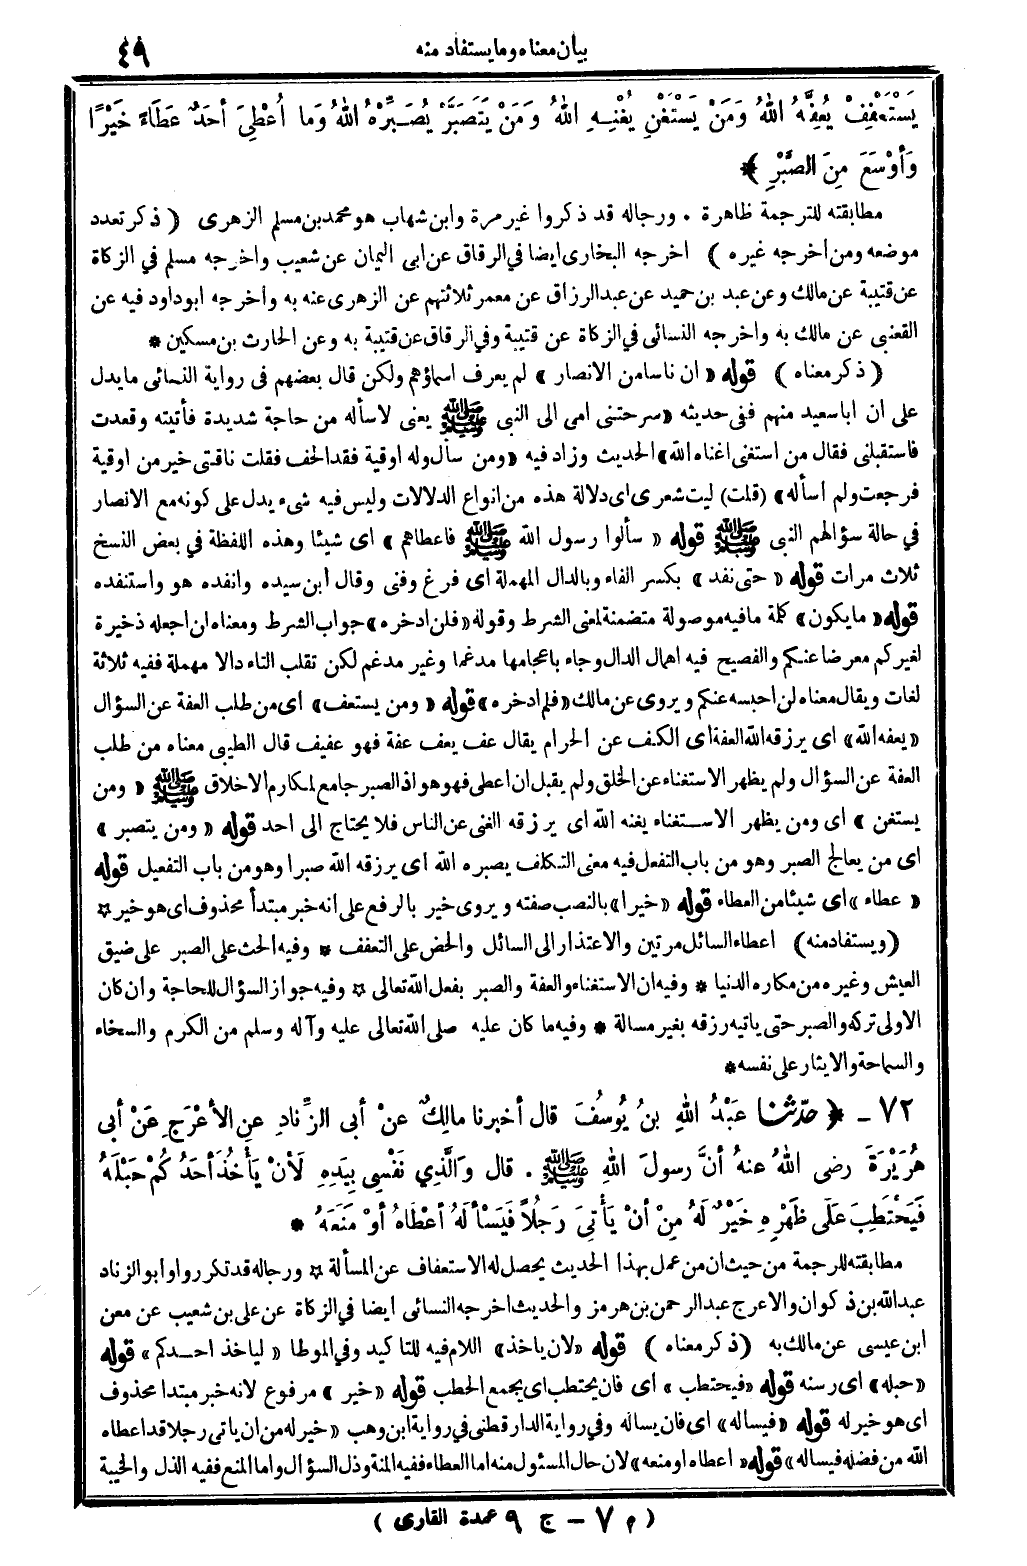 بيان معناه وما يستفاد منه ٤٩
يَسْتَعْفِفْ يُعِفَّهُ اللهُ وَمَنْ يَسْتَغْنِ يُغْنِهِ اللهُ وَمَنْ يَتَصَبَّرْ يُصَبِّرْهُ اللهُ وَما أُعْطِيَ أحَدٌ عَطَاءً خَيْرًا
وَأوْسَعَ مِنَ الصَّبْرِ ﴾ *
مطابقته للترجمة ظاهرة . ورجاله قد ذكروا غير مرة وابن شهاب هو محمد بن مسلم الزهرى ( ذكر تعدد
موضعه ومن أخرجه غيره ) اخرجه البخارى ايضا في الرقاق عن ابى اليمان عن شعيب واخرجه مسلم في الزكاة
عن قتيبة عن مالك وعن عبد بن حميد عن عبد الرزاق عن معمر ثلاثتهم عن الزهرى عنه به وأخرجه ابو داود فيه عن
القعنبى عن مالك به واخرجه النسائى في الزكاة عن قتيبة وفي الرقاق عن قتيبة به وعن الحارث بن مسكين *
( ذكر معناه ) قوله « ان ناسا من الانصار » لم يعرف اسماؤهم ولكن قال بعضهم فى رواية النسائى ما يدل
على ان ابا سعيد منهم ففى حديثه «سرحتنى امى الى النبى ﷺ يعنى لاسأله من حاجة شديدة فأتيته وقعدت
فاستقبلنى فقال من استغنى اغناه الله» الحديث وزاد فيه «ومن سأل وله اوقية فقد الحف فقلت ناقتى خير من اوقية
فرجعت ولم أسأله» (قلت) ليت شعرى اى دلالة هذه من انواع الدلالات وليس فيه شىء يدل على كونه مع الانصار
في حالة سؤالهم النبى ﷺ قوله « سألوا رسول الله ﷺ فاعطاهم » اى شيئا وهذه اللفظة في بعض النسخ
ثلاث مرات قوله « حتى نفد » بكسر الفاء وبالدال المهملة اى فرغ وفنى وقال ابن سيده وانفده هو واستنفده
قوله « ما يكون» كلمة ما فيه موصولة متضمنة لمعنى الشرط وقوله «فلن ادخره» جواب الشرط ومعناه ان اجعله ذخيرة
لغيركم معرضا عنكم والفصيح فيه اهمال الدال وجاء باعجامها مدغما وغير مدغم لكن تقلب التاء دالا مهملة ففيه ثلاثة
لغات ويقال معناه لن احبسه عنكم ويروى عن مالك «فلم ادخره» قوله « ومن يستعف » اى من طلب العفة عن السؤال
«يعفه الله» اى يرزقه الله العفة اى الكف عن الحرام يقال عف يعف عفة فهو عفيف قال الطيبى معناه من طلب
العفة عن السؤال ولم يظهر الاستغناء عن الخلق ولم يقبل ان اعطى فهو هو اذ الصبر جامع لمكارم الاخلاق ﷺ « ومن
يستغن » اى ومن يظهر الاستغناء يغنه الله اى يرزقه الغنى عن الناس فلا يحتاج الى احد قوله « ومن يتصبر »
اى من يعالج الصبر وهو من باب التفعل فيه معنى التكلف يصبره الله اى يرزقه الله صبرا وهو من باب التفعيل قوله
« عطاء » اى شيئا من العطاء قوله «خيرا» بالنصب صفته ويروى خير بالرفع على انه خبر مبتدأ محذوف اى هو خير *
(ويستفاد منه) اعطاء السائل مرتين والاعتذار الى السائل والحض على التعفف * وفيه الحث على الصبر على ضيق
العيش وغيره من مكاره الدنيا * وفيه ان الاستغناء والعفة والصبر بفعل الله تعالى * وفيه جواز السؤال للحاجة وان كان
الاولى تركه والصبر حتى ياتيه رزقه بغير مسالة * وفيه ما كان عليه صلى الله تعالى عليه وآله وسلم من الكرم والسخاء
والسماحة والايثار على نفسه *
٧٢ - ﴿ حدّثنا عَبْدُ اللهِ بنُ يُوسُفَ قال أخبرنا مالِكٌ عنْ أبى الزِّنادِ عنِ الأعْرَجِ عَنْ أبى
هُرَيْرَةَ رضى اللهُ عنهُ أنَّ رسولَ اللهِ ﷺ . قال وَالَّذِي نَفْسِى بِيَدِهِ لَأنْ يَأْخُذَ أحَدُكُمْ حَبْلَهُ
فَيَحْتَطِبَ عَلَى ظَهْرِهِ خَيْرٌ لَهُ مِنْ أنْ يَأْتِيَ رَجُلاً فَيَسْألَهُ أعْطَاهُ أوْ مَنَعَهُ *
مطابقته للترجمة من حيث ان من عمل بهذا الحديث يحصل له الاستعفاف عن المسألة * ورجاله قد تكرروا وابو الزناد
عبد الله بن ذكوان والاعرج عبد الرحمن بن هرمز والحديث اخرجه النسائى ايضا في الزكاة عن على بن شعيب عن معن
ابن عيسى عن مالك به (ذكر معناه ) قوله «لان ياخذ» اللام فيه للتاكيد وفي الموطا « لياخذ احدكم» قوله
«حبله» اى رسنه قوله «فيحتطب» اى فان يحتطب اى يجمع الحطب قوله «خير » مرفوع لانه خبر مبتدا محذوف
اى هو خير له قوله «فيساله» اى فان يساله وفي رواية الدارقطنى في رواية ابن وهب «خير له من ان ياتى رجلا قد اعطاه
الله من فضله فيساله» قوله « اعطاه او منعه» لان حال المسئول منه اما العطاء ففيه المنة وذل السؤال واما المنع ففيه الذل والخيبة
( م ٧ - ج ٩ عمدة القارى )